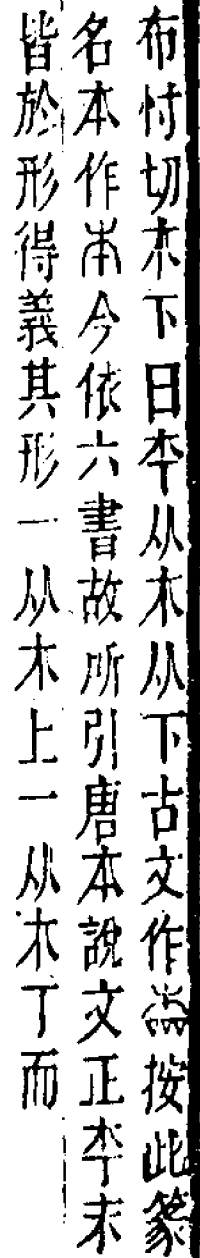 布忖切木下曰夲从木从下古文作𣎵按此篆
名本作本今依六書故所引唐本說文正李末
皆於形得義其形一从木上一从木丁而